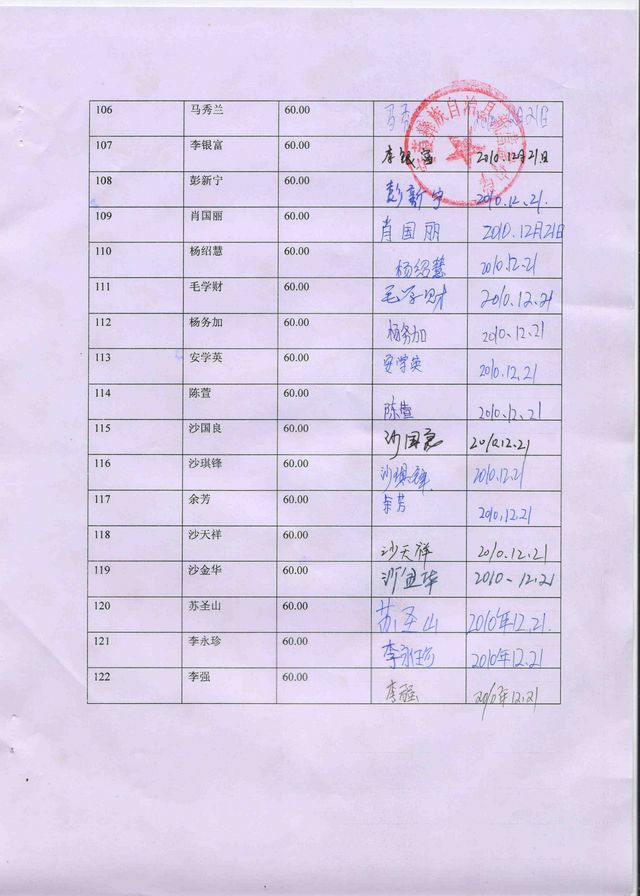 106 马秀兰 60.00 马秀 21日
107 李银富 60.00 李银富 2010.12月21日
108 彭新宁 60.00 彭新宁 2010.12.21.
109 肖国丽 60.00 肖国丽 2010.12月21日
110 杨绍慧 60.00 杨绍慧 2010.12.21
111 毛学财 60.00 毛学财 2010.12.21
112 杨务加 60.00 杨务加 2010.12.21
113 安学英 60.00 安学英 2010.12.21
114 陈萱 60.00 陈萱 2010.12.21
115 沙国良 60.00 沙国良 2010.12.21
116 沙琪锋 60.00 沙琪锋 2010.12.21
117 余芳 60.00 余芳 2010.12.21
118 沙天祥 60.00 沙天祥 2010.12.21
119 沙金华 60.00 沙金华 2010-12.21
120 苏圣山 60.00 苏圣山 2010年12.21.
121 李永珍 60.00 李永珍 2010年12.21
122 李强 60.00 李强 2010年12.21
彝族自治县